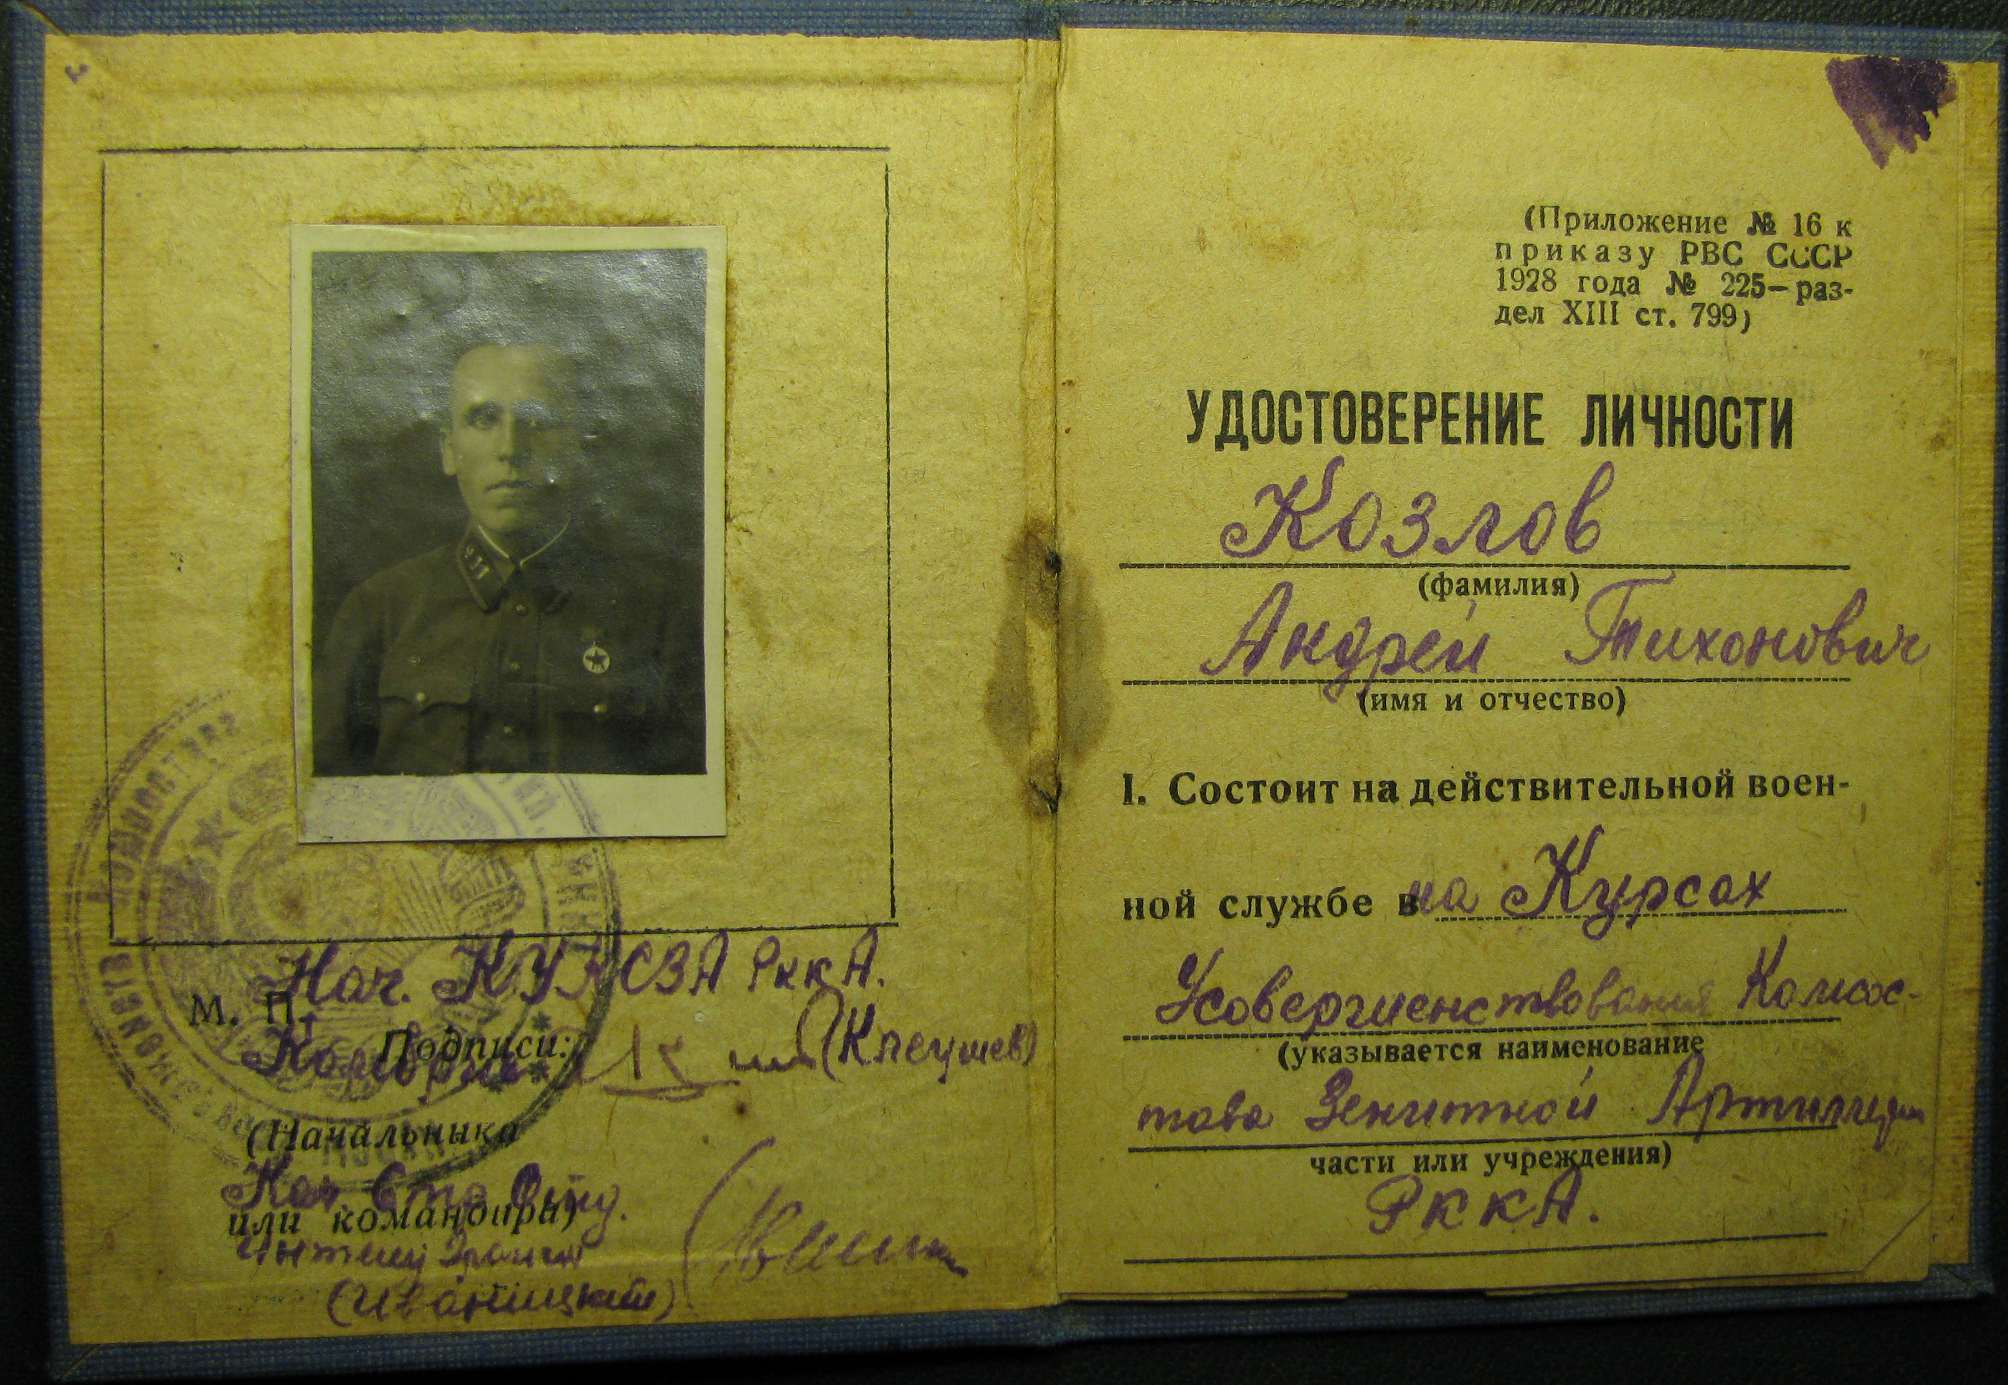 Нач. КУКСЗА РККА.
М. П.
Комбриг
Подписи:
(Клеушев)
(Начальника
Нач. Стр. Отд.
или командира)
Интенд 3 ранга
(Иваницкий)
КОМСОСТАВА
937
(Приложение № 16 к
приказу РВС СССР
1928 года № 225—раз-
дел XIII ст. 799)
УДОСТОВЕРЕНИЕ ЛИЧНОСТИ
Козлов
(фамилия)
Андрей Тихонович
(имя и отчество)
I. Состоит на действительной воен-
ной службе в на Курсах
Усовершенствования Комсос-
(указывается наименование
тава Зенитной Артиллерии
части или учреждения)
РККА.